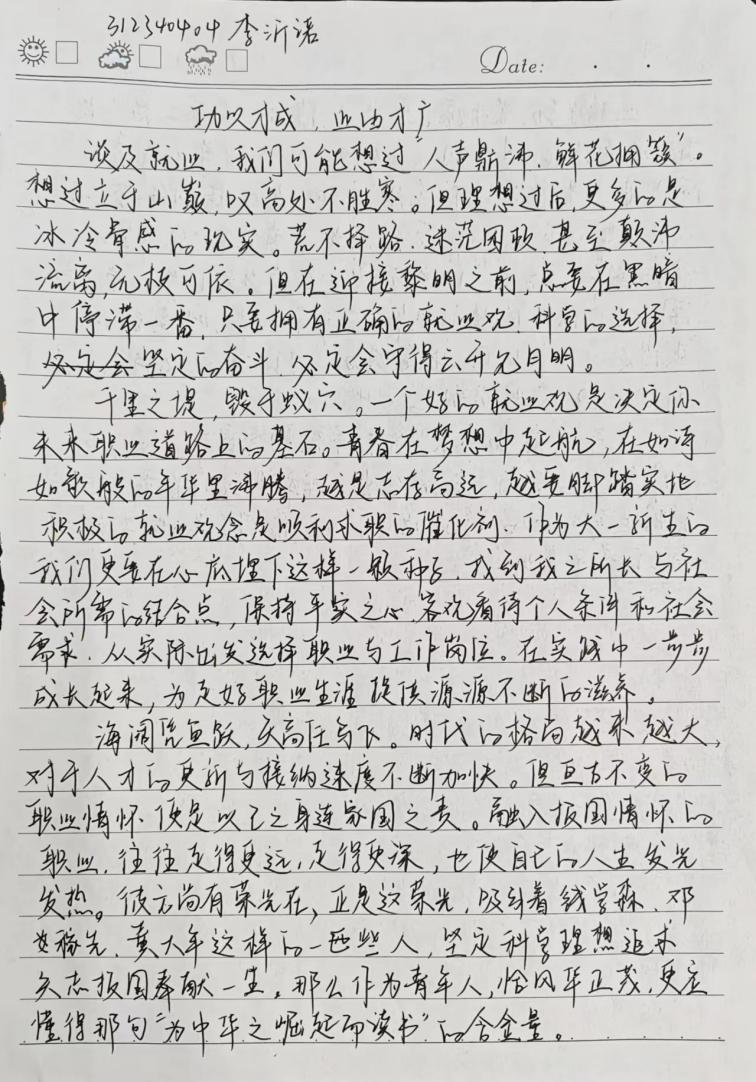 312340404 李沂诺
Date:
功以才成，业由才广
谈及就业，我们可能想过“人声鼎沸，鲜花拥簇”。
想过立于山巅，叹高处不胜寒。但理想过后，更多的是
冰冷骨感的现实。荒不择路，迷茫困顿，甚至颠沛
流离，无枝可依。但在迎接黎明之前，总要在黑暗
中停滞一番，只要拥有正确的就业观，科学的选择，
坚定的奋斗，必定会守得云开见月明。
千里之堤，毁于蚁穴。一个好的就业观是决定你
未来职业道路上的基石。青春在梦想中起航，在如诗
如歌般的年华里沸腾，越是志存高远，越要脚踏实地
积极的就业观念是顺利求职的催化剂，作为大一新生的
我们更要在心底埋下这样一颗种子，找到我之所长与社
会所需的结合点，保持平实之心，客观看待个人条件和社会
需求，从实际出发选择职业与工作岗位。在实践中一步步
成长起来，为走好职业生涯提供源源不断的滋养。
海阔凭鱼跃，天高任鸟飞。时代的格局越来越大，
对于人才的更新与接纳速度不断加快。但亘古不变的
职业情怀便是以己之身连家国之责。融入报国情怀的
职业，往往走得更远，走得更深，也使自己的人生发光
发热。彼方尚有荣光在，正是这荣光，吸引着钱学森、邓
稼先、黄大年这样的一些人，坚定科学理想追求
矢志报国奉献一生。那么作为青年人，恰风华正茂，更应
懂得那句“为中华之崛起而读书”的含金量。